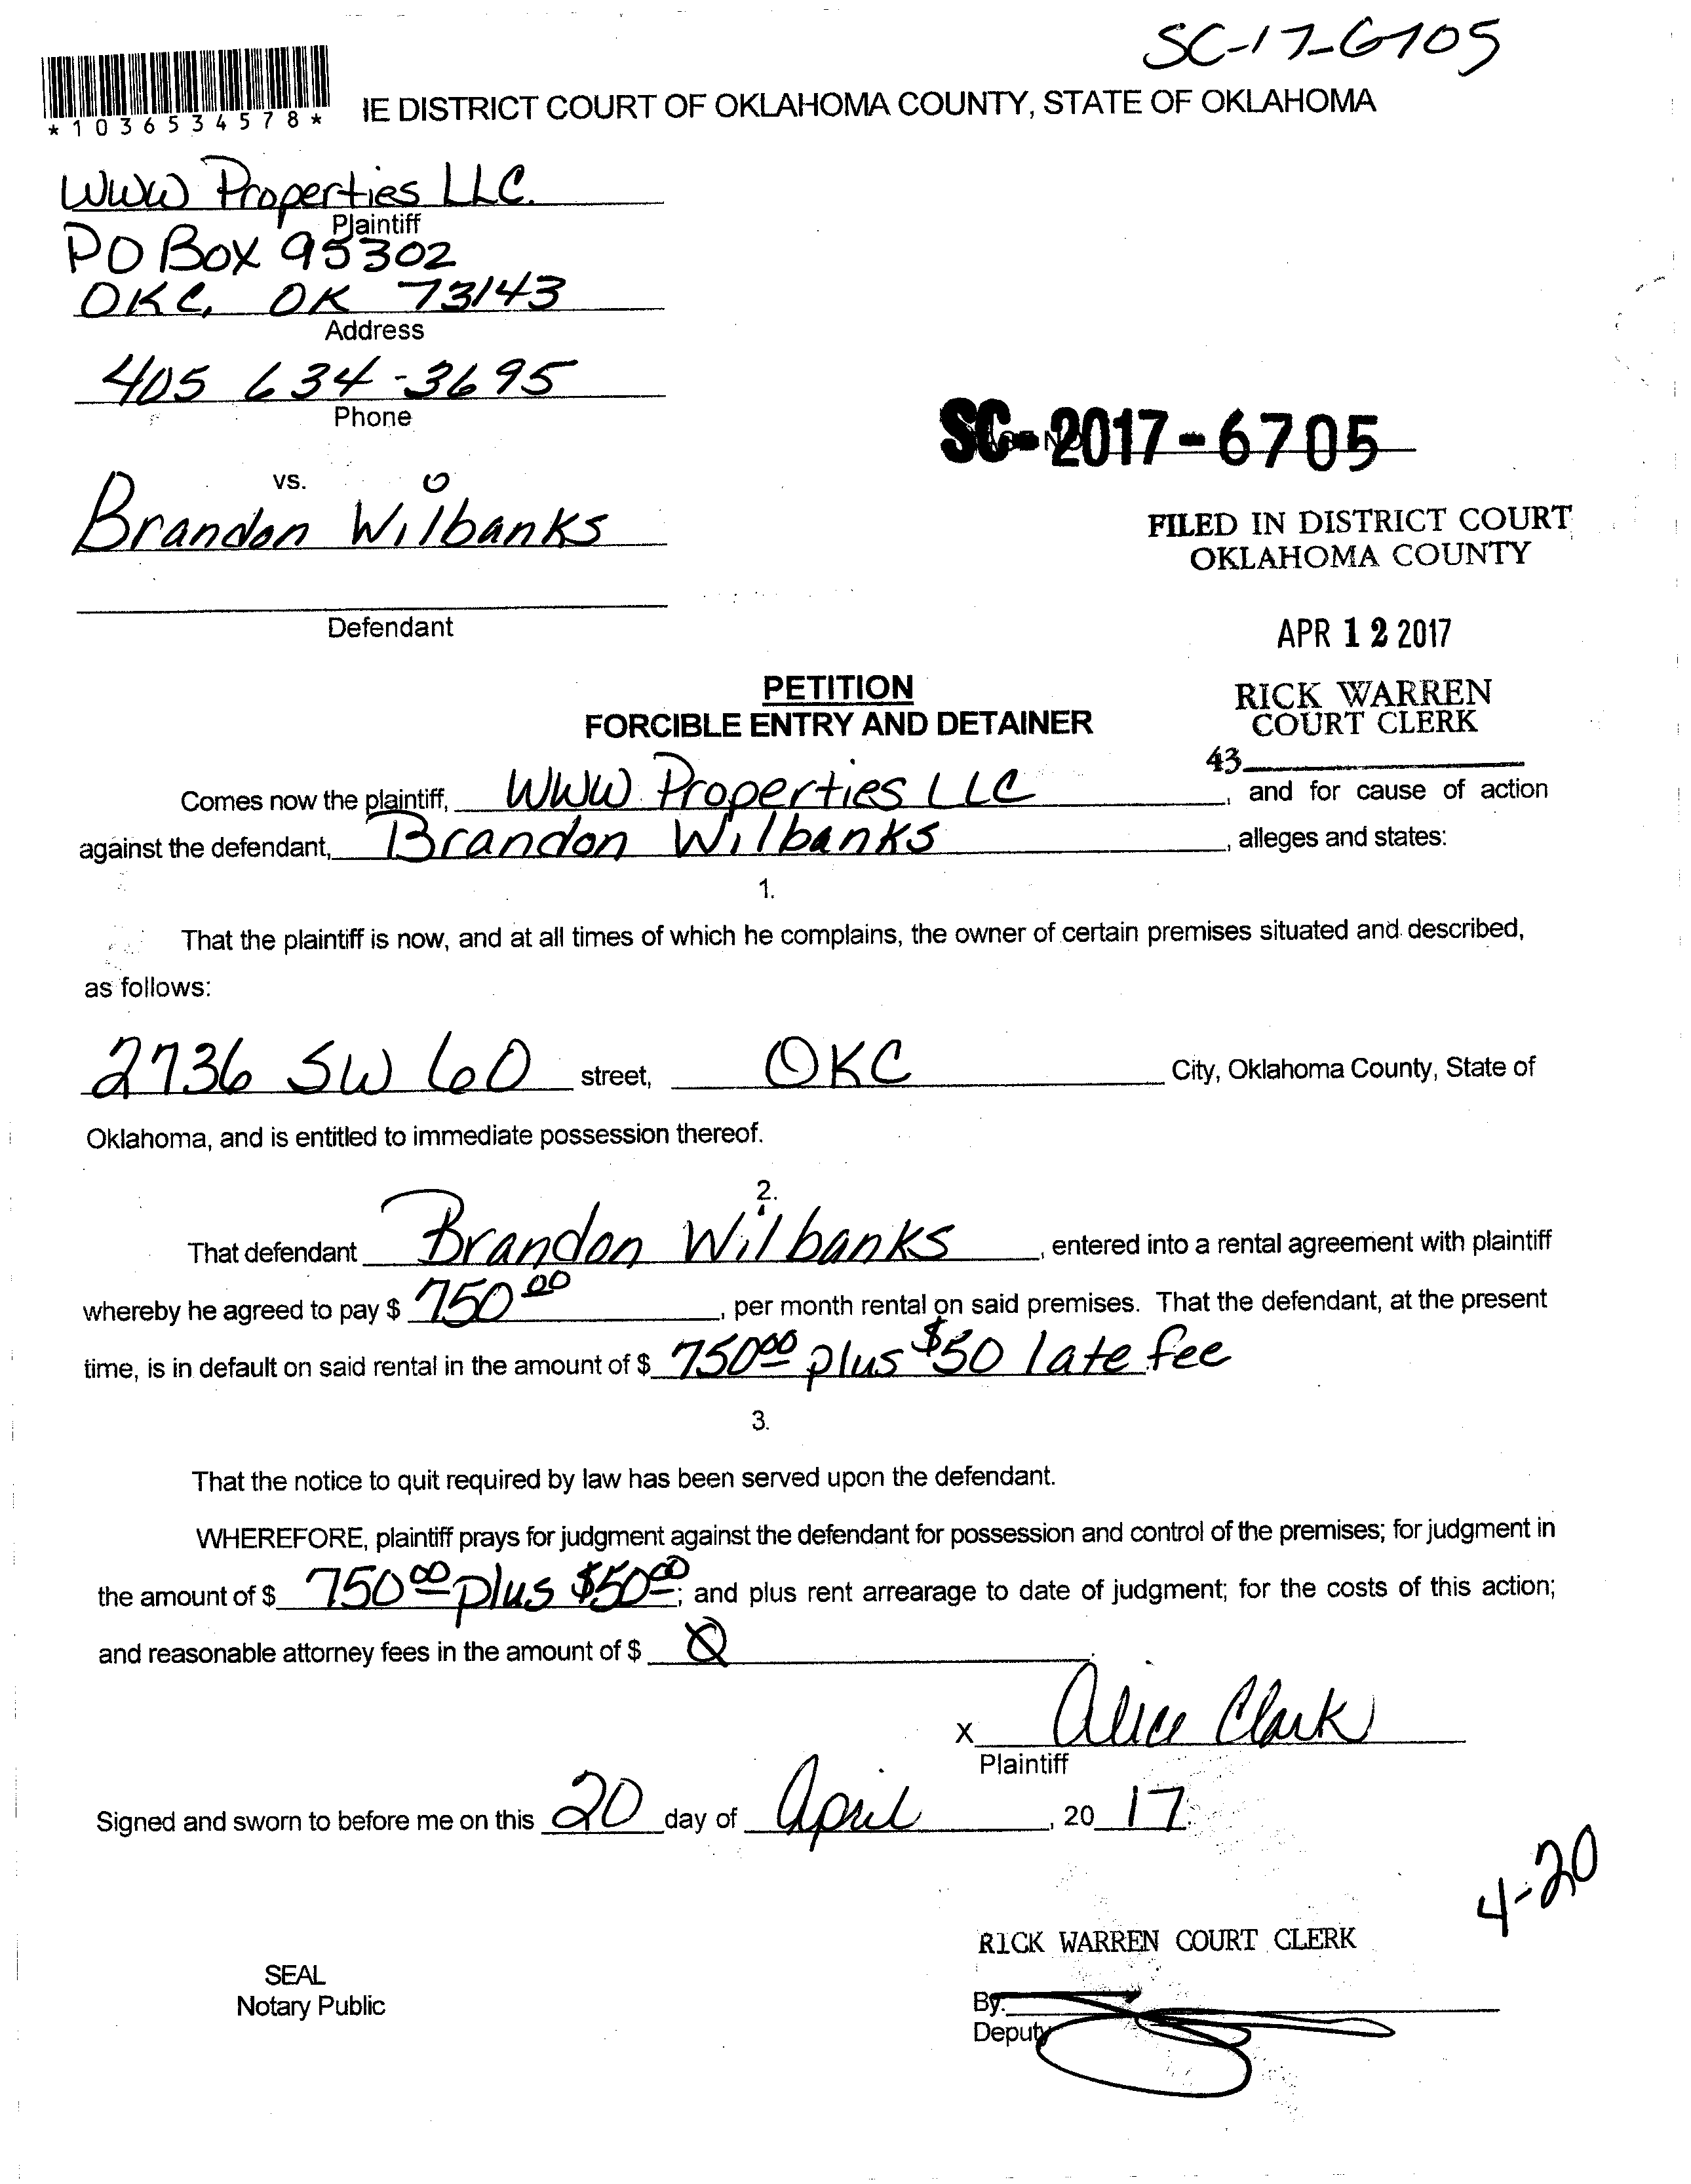 SC-17-6705
*1036534578*
IE DISTRICT COURT OF OKLAHOMA COUNTY, STATE OF OKLAHOMA
WWW Properties LLC.
Plaintiff
PO Box 95302
OKC, OK 73143
Address
405 634-3695
Phone
SC-2017-6705
vs.
Brandon Wilbanks
FILED IN DISTRICT COURT
OKLAHOMA COUNTY
Defendant
APR 12 2017
PETITION
FORCIBLE ENTRY AND DETAINER
RICK WARREN
COURT CLERK
43
Comes now the plaintiff, WWW Properties LLC, and for cause of action
against the defendant, Brandon Wilbanks, alleges and states:
1.
That the plaintiff is now, and at all times of which he complains, the owner of certain premises situated and described,
as follows:
2736 SW 60 street, OKC City, Oklahoma County, State of
Oklahoma, and is entitled to immediate possession thereof.
2.
That defendant Brandon Wilbanks, entered into a rental agreement with plaintiff
whereby he agreed to pay $ 750 00, per month rental on said premises. That the defendant, at the present
time, is in default on said rental in the amount of $ 750 00 plus $50 late fee
3.
That the notice to quit required by law has been served upon the defendant.
WHEREFORE, plaintiff prays for judgment against the defendant for possession and control of the premises; for judgment in
the amount of $ 750 00 plus $50 00; and plus rent arrearage to date of judgment; for the costs of this action;
and reasonable attorney fees in the amount of $ 0.
X Alice Clark
Plaintiff
Signed and sworn to before me on this 20 day of April, 20 17.
4-20
RICK WARREN COURT CLERK
SEAL
Notary Public
By:
Deputy